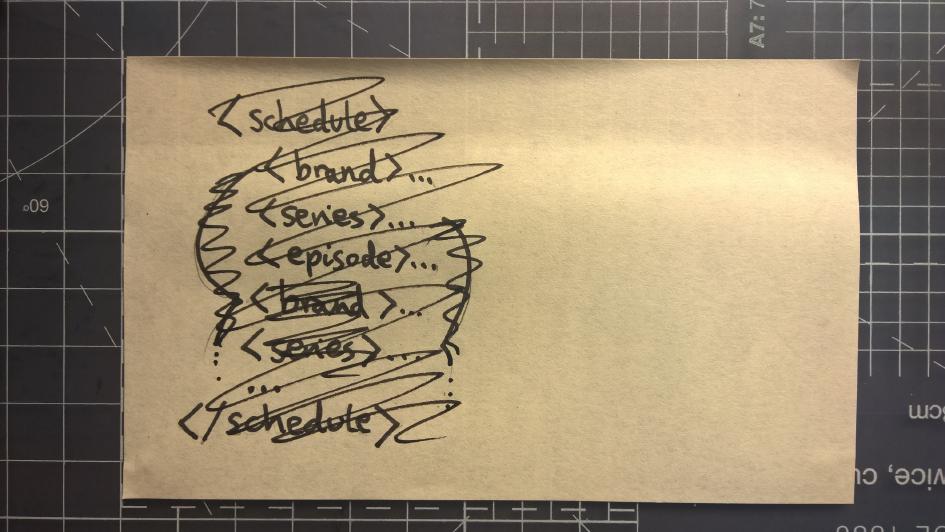 A7:7
60°
<schedule>
<brand>...
<series>...
<episode>...
<brand>...
<series>...
...
</schedule>
cm